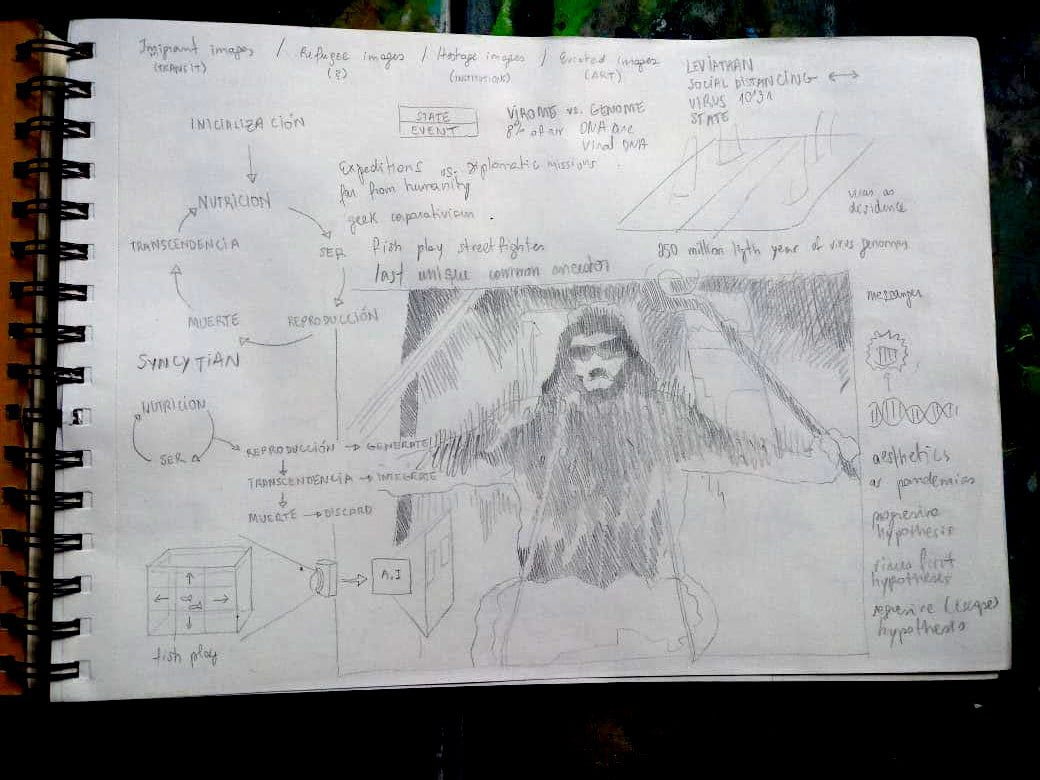 Imigrant images / Refugee images / Hostage images / Evicted images
(TRANSIT) (?) (INSTITUTIONS) (ART)
LEVIATHAN
SOCIAL DISTANCING
VIRUS 10^31
STATE
INICIALIZACIÓN
STATE
EVENT
VIROME vs. GENOME
8% of our DNA are
viral DNA
Expeditions vs. Diplomatic missions
far from humanity
geek corporativism.
Fish play streetfighter
last unique common ancestor
virus as
disidence
250 million ligth year of virus genomes
NUTRICIÓN
SER
REPRODUCCIÓN
MUERTE
TRANSCENDENCIA
SYNCYTIAN
NUTRICIÓN
SER
REPRODUCCIÓN → GENERATE
TRANSCENDENCIA → INTEGRATE
MUERTE → DISCARD
A.I
fish play
messanger
aesthetics
as pandemias
progresive
hypothesis
virues first
hypotheses
regresive (escape)
hypothesis